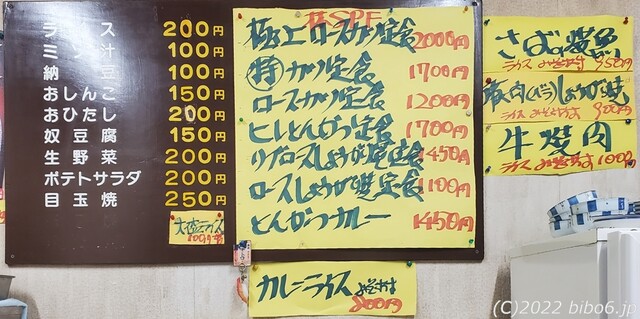 ライス 200円
ミソ汁 100円
納豆 100円
おしんこ 150円
おひたし 200円
奴豆腐 150円
生野菜 200円
ポテトサラダ 200円
目玉焼 250円
大盛ライス
SPF
極上ロースカツ定食 2000円
特カツ定食 1700円
ロースカツ定食 1200円
ヒレとんかつ定食 1700円
リブロースしょうが焼定食 1450円
ロースしょうが焼定食 1100円
とんかつカレー 1450円
カレーライス みそ汁付 800円
さばの塩焼
ライス みそ汁付 950円
豚肉(バラ)しょうが焼
ライス みそ汁付 900円
牛焼肉
ライス みそ汁付 1000円
(C)2022 bibo6.jp